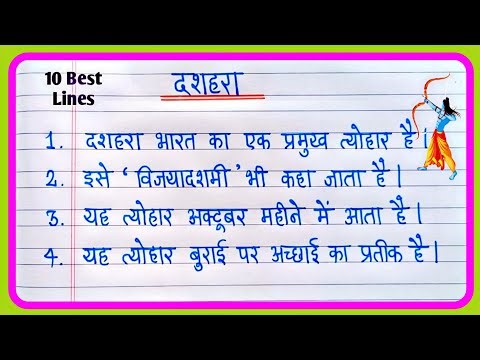 10 Best
Lines
दशहरा
1. दशहरा भारत का एक प्रमुख त्योहार है।
2. इसे ‘विजयादशमी’ भी कहा जाता है।
3. यह त्योहार अक्टूबर महीने में आता है।
4. यह त्योहार बुराई पर अच्छाई का प्रतीक है।